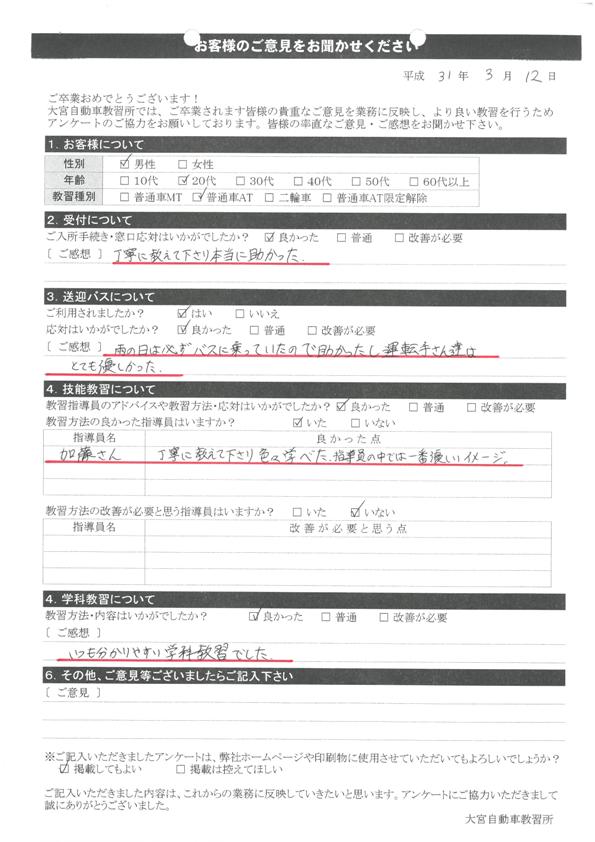 お客様のご意見をお聞かせください
平成 31 年 3 月 12 日
ご卒業おめでとうございます！
大宮自動車教習所では、ご卒業されます皆様の貴重なご意見を業務に反映し、より良い教習を行うため
アンケートのご協力をお願いしております。皆様の率直なご意見・ご感想をお聞かせ下さい。
1. お客様について
性別 ☑ 男性 □ 女性
年齢 □ 10代 ☑ 20代 □ 30代 □ 40代 □ 50代 □ 60代以上
教習種別 □ 普通車MT ☑ 普通車AT □ 二輪車 □ 普通車AT限定解除
2. 受付について
ご入所手続き・窓口応対はいかがでしたか？ ☑ 良かった □ 普通 □ 改善が必要
[ ご感想 ] 丁寧に教えて下さり本当に助かった.
3. 送迎バスについて
ご利用されましたか？ ☑ はい □ いいえ
応対はいかがでしたか？ ☑ 良かった □ 普通 □ 改善が必要
[ ご感想 ] 雨の日は必ずバスに乗っていたので助かったし運転手さん達は
とても優しかった.
4. 技能教習について
教習指導員のアドバイスや教習方法・応対はいかがでしたか？ ☑ 良かった □ 普通 □ 改善が必要
教習方法の良かった指導員はいますか？ ☑ いた □ いない
指導員名 良かった点
加藤さん 丁寧に教えて下さり色々学べた.指導員の中では一番優しいイメージ.
教習方法の改善が必要と思う指導員はいますか？ □ いた ☑ いない
指導員名 改善が必要と思う点
4. 学科教習について
教習方法・内容はいかがでしたか？ ☑ 良かった □ 普通 □ 改善が必要
[ ご感想 ]
いつも分かりやすい学科教習でした.
6. その他、ご意見等ございましたらご記入下さい
[ ご意見 ]
※ご記入いただきましたアンケートは、弊社ホームページや印刷物に使用させていただいてもよろしいでしょうか？
☑ 掲載してもよい □ 掲載は控えてほしい
ご記入いただきました内容は、これからの業務に反映していきたいと思います。アンケートにご協力いただきまして
誠にありがとうございました。
大宮自動車教習所